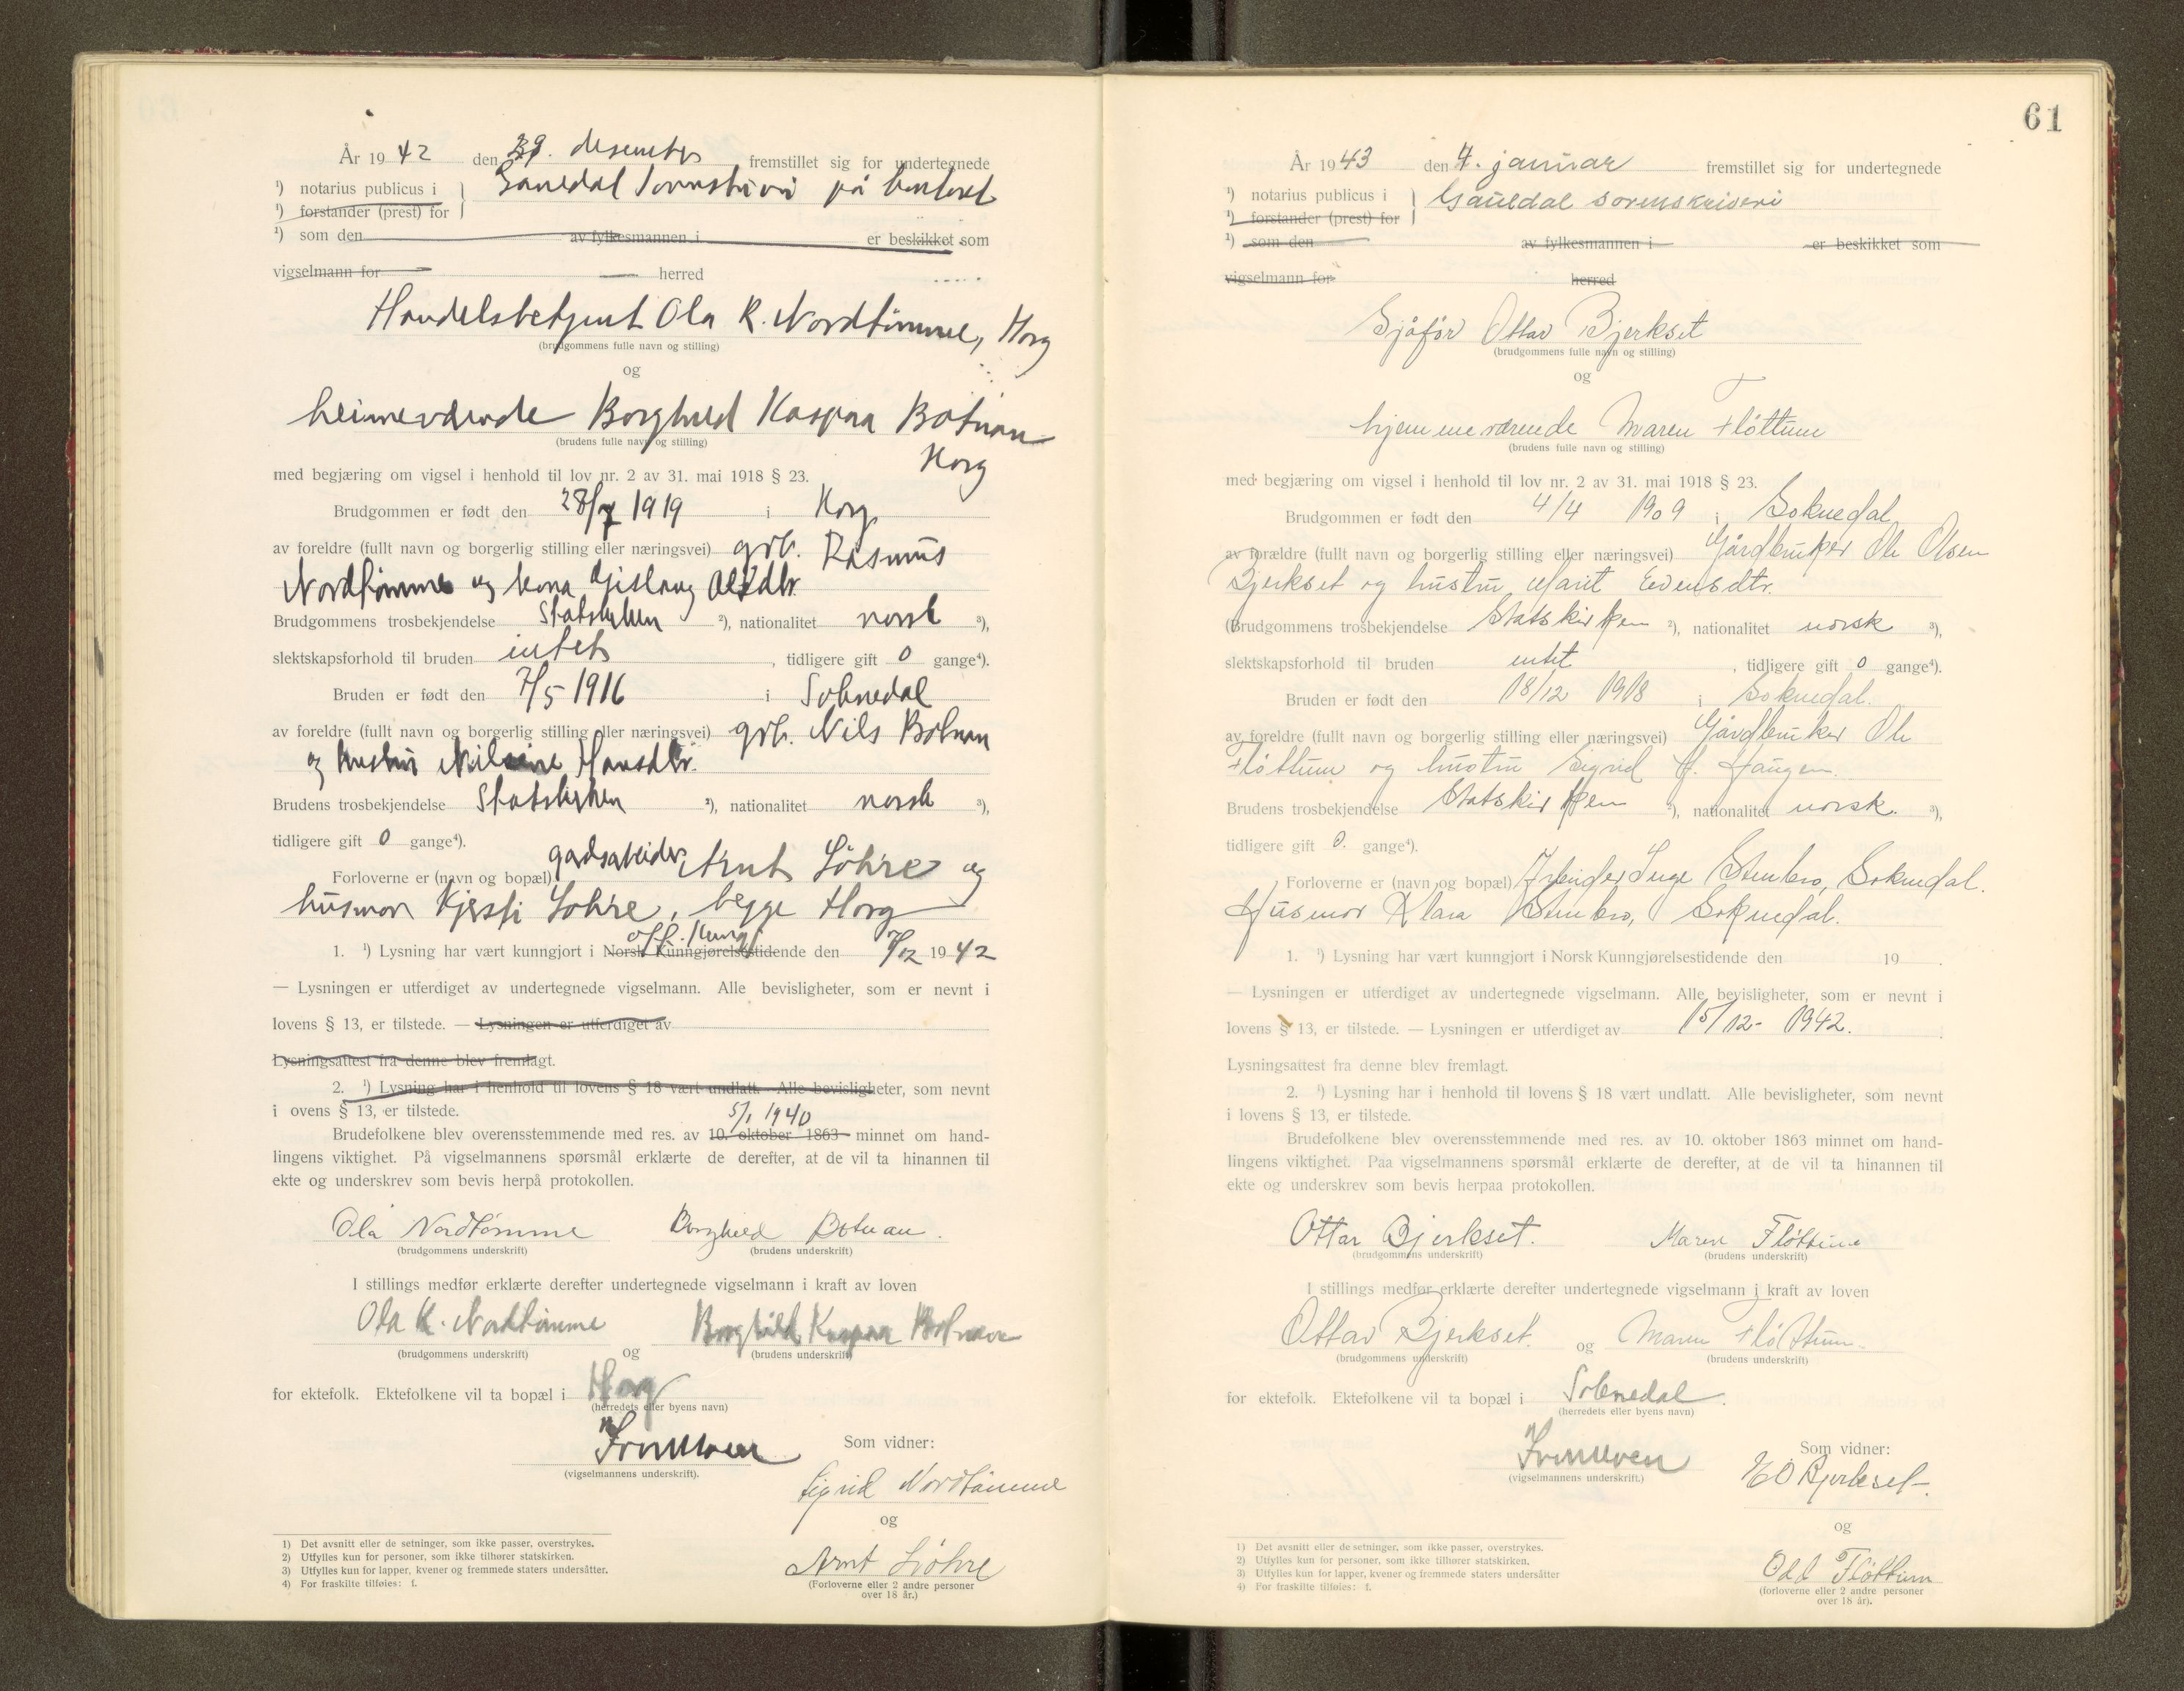 År 1942 den 29. desember fremstillet sig for undertegnede
¹) notarius publicus i Gauldal sorenskriveri på kontoret
¹) forstander (prest) for
¹) som den av fylkesmannen i er beskikket som
vigselmann for herred
Handelsbetjent Ola R. Nordtømme, Horg
(brudgommens fulle navn og stilling)
og
heimeværende Borghild Kaspara Botnan
(brudens fulle navn og stilling)
Horg
med begjæring om vigsel i henhold til lov nr. 2 av 31. mai 1918 § 23.
Brudgommen er født den 28/7 1919 i Horg
av foreldre (fullt navn og borgerlig stilling eller næringsvei) grb. Rasmus
Nordtømme og kona Gjislaug Olsdtr.
Brudgommens trosbekjendelse Statskirken ²), nationalitet norsk ³),
slektskapsforhold til bruden intet, tidligere gift 0 gange⁴).
Bruden er født den 7/5 1916 i Soknedal
av foreldre (fullt navn og borgerlig stilling eller næringsvei) grb. Nils Botnan
og hustru Nilsine Hansdtr.
Brudens trosbekjendelse Statskirken ²), nationalitet norsk ³),
tidligere gift 0 gange⁴).
Forloverne er (navn og bopæl) gardsarbeider Arnt Løhre og
husmor Kjersti Løhre, begge Horg
off. kunngj.
1. ¹) Lysning har vært kunngjort i Norsk Kunngjørelsestidende den 7/12 1942
— Lysningen er utferdiget av undertegnede vigselmann. Alle bevisligheter, som er nevnt i
lovens § 13, er tilstede. — Lysningen er utferdiget av
Lysningsattest fra denne blev fremlagt.
2. ¹) Lysning har i henhold til lovens § 18 vært undlatt. Alle bevisligheter, som nevnt
i ovens § 13, er tilstede.
5/1 1940
Brudefolkene blev overensstemmende med res. av 10. oktober 1863 minnet om hand-
lingens viktighet. På vigselmannens spørsmål erklærte de derefter, at de vil ta hinannen til
ekte og underskrev som bevis herpå protokollen.
Ola Nordtømme Borghild Botnan.
(brudgommens underskrift) (brudens underskrift)
I stillings medfør erklærte derefter undertegnede vigselmann i kraft av loven
Ola R. Nordtømme Borghild Kaspara Botnan
(brudgommens underskrift) og (brudens underskrift)
for ektefolk. Ektefolkene vil ta bopæl i Horg
(herredets eller byens navn)
(vigselmannens underskrift).
Som vidner:
Sigrid Nordtømme
og
Arnt Løhre
(Forloverne eller 2 andre personer
over 18 år.)
1) Det avsnitt eller de setninger, som ikke passer, overstrykes.
2) Utfylles kun for personer, som ikke tilhører statskirken.
3) Utfylles kun for lapper, kvener og fremmede staters undersåtter.
4) For fraskilte tilføies: f.
61
År 1943 den 7. januar fremstillet sig for undertegnede
¹) notarius publicus i Gauldal sorenskriveri
¹) forstander (prest) for
¹) som den av fylkesmannen i er beskikket som
vigselmann for herred
Sjåfør Ottar Bjerkset
(brudgommens fulle navn og stilling)
og
hjemmeværende Maren Fløttum
(brudens fulle navn og stilling)
med begjæring om vigsel i henhold til lov nr. 2 av 31. mai 1918 § 23.
Brudgommen er født den 4/4 1909 i Soknedal
av forældre (fullt navn og borgerlig stilling eller næringsvei) Gårdbruker Ole Olsen
Bjerkset og hustru Marit Evensdtr.
(Brudgommens trosbekjendelse Statskirken ²), nationalitet norsk ³),
slektskapsforhold til bruden intet, tidligere gift 0 gange⁴).
Bruden er født den 18/12 1918 i Soknedal.
av foreldre (fullt navn og borgerlig stilling eller næringsvei) Gårdbruker Ole
Fløttum og hustru Sigrid H. Haugen.
Brudens trosbekjendelse Statskirken ²), nationalitet norsk. ³),
tidligere gift 0. gange⁴).
Forloverne er (navn og bopæl) Arbeider Inge Stenbro, Soknedal.
Husmor Klara Stenbro, Soknedal.
1. ¹) Lysning har vært kunngjort i Norsk Kunngjørelsestidende den 19 .
— Lysningen er utferdiget av undertegnede vigselmann. Alle bevisligheter, som er nevnt i
lovens § 13, er tilstede. — Lysningen er utferdiget av 15/12- 1942.
Lysningsattest fra denne blev fremlagt.
2. ¹) Lysning har i henhold til lovens § 18 vært undlatt. Alle bevisligheter, som nevnt
i lovens § 13, er tilstede.
Brudefolkene blev overensstemmende med res. av 10. oktober 1863 minnet om hand-
lingens viktighet. Paa vigselmannens spørsmål erklærte de derefter, at de vil ta hinannen til
ekte og underskrev som bevis herpaa protokollen.
Ottar Bjerkset. Maren Fløttum
(brudgommens underskrift) (brudens underskrift)
I stillings medfør erklærte derefter undertegnede vigselmann i kraft av loven
Ottar Bjerkset. og Maren Fløttum
(brudgommens underskrift) (brudens underskrift)
for ektefolk. Ektefolkene vil ta bopæl i Soknedal.
(herredets eller byens navn)
(vigselmannens underskrift.)
Som vidner:
E O Bjerkset.
og
Odd Fløttum
(forloverne eller 2 andre personer
over 18 år).
1) Det avsnitt eller de setninger, som ikke passer, overstrykes.
2) Utfylles kun for personer, som ikke tilhører statskirken.
3) Utfylles kun for lapper, kvener og fremmede staters undersåtter
4) For fraskilte tilføies: f.